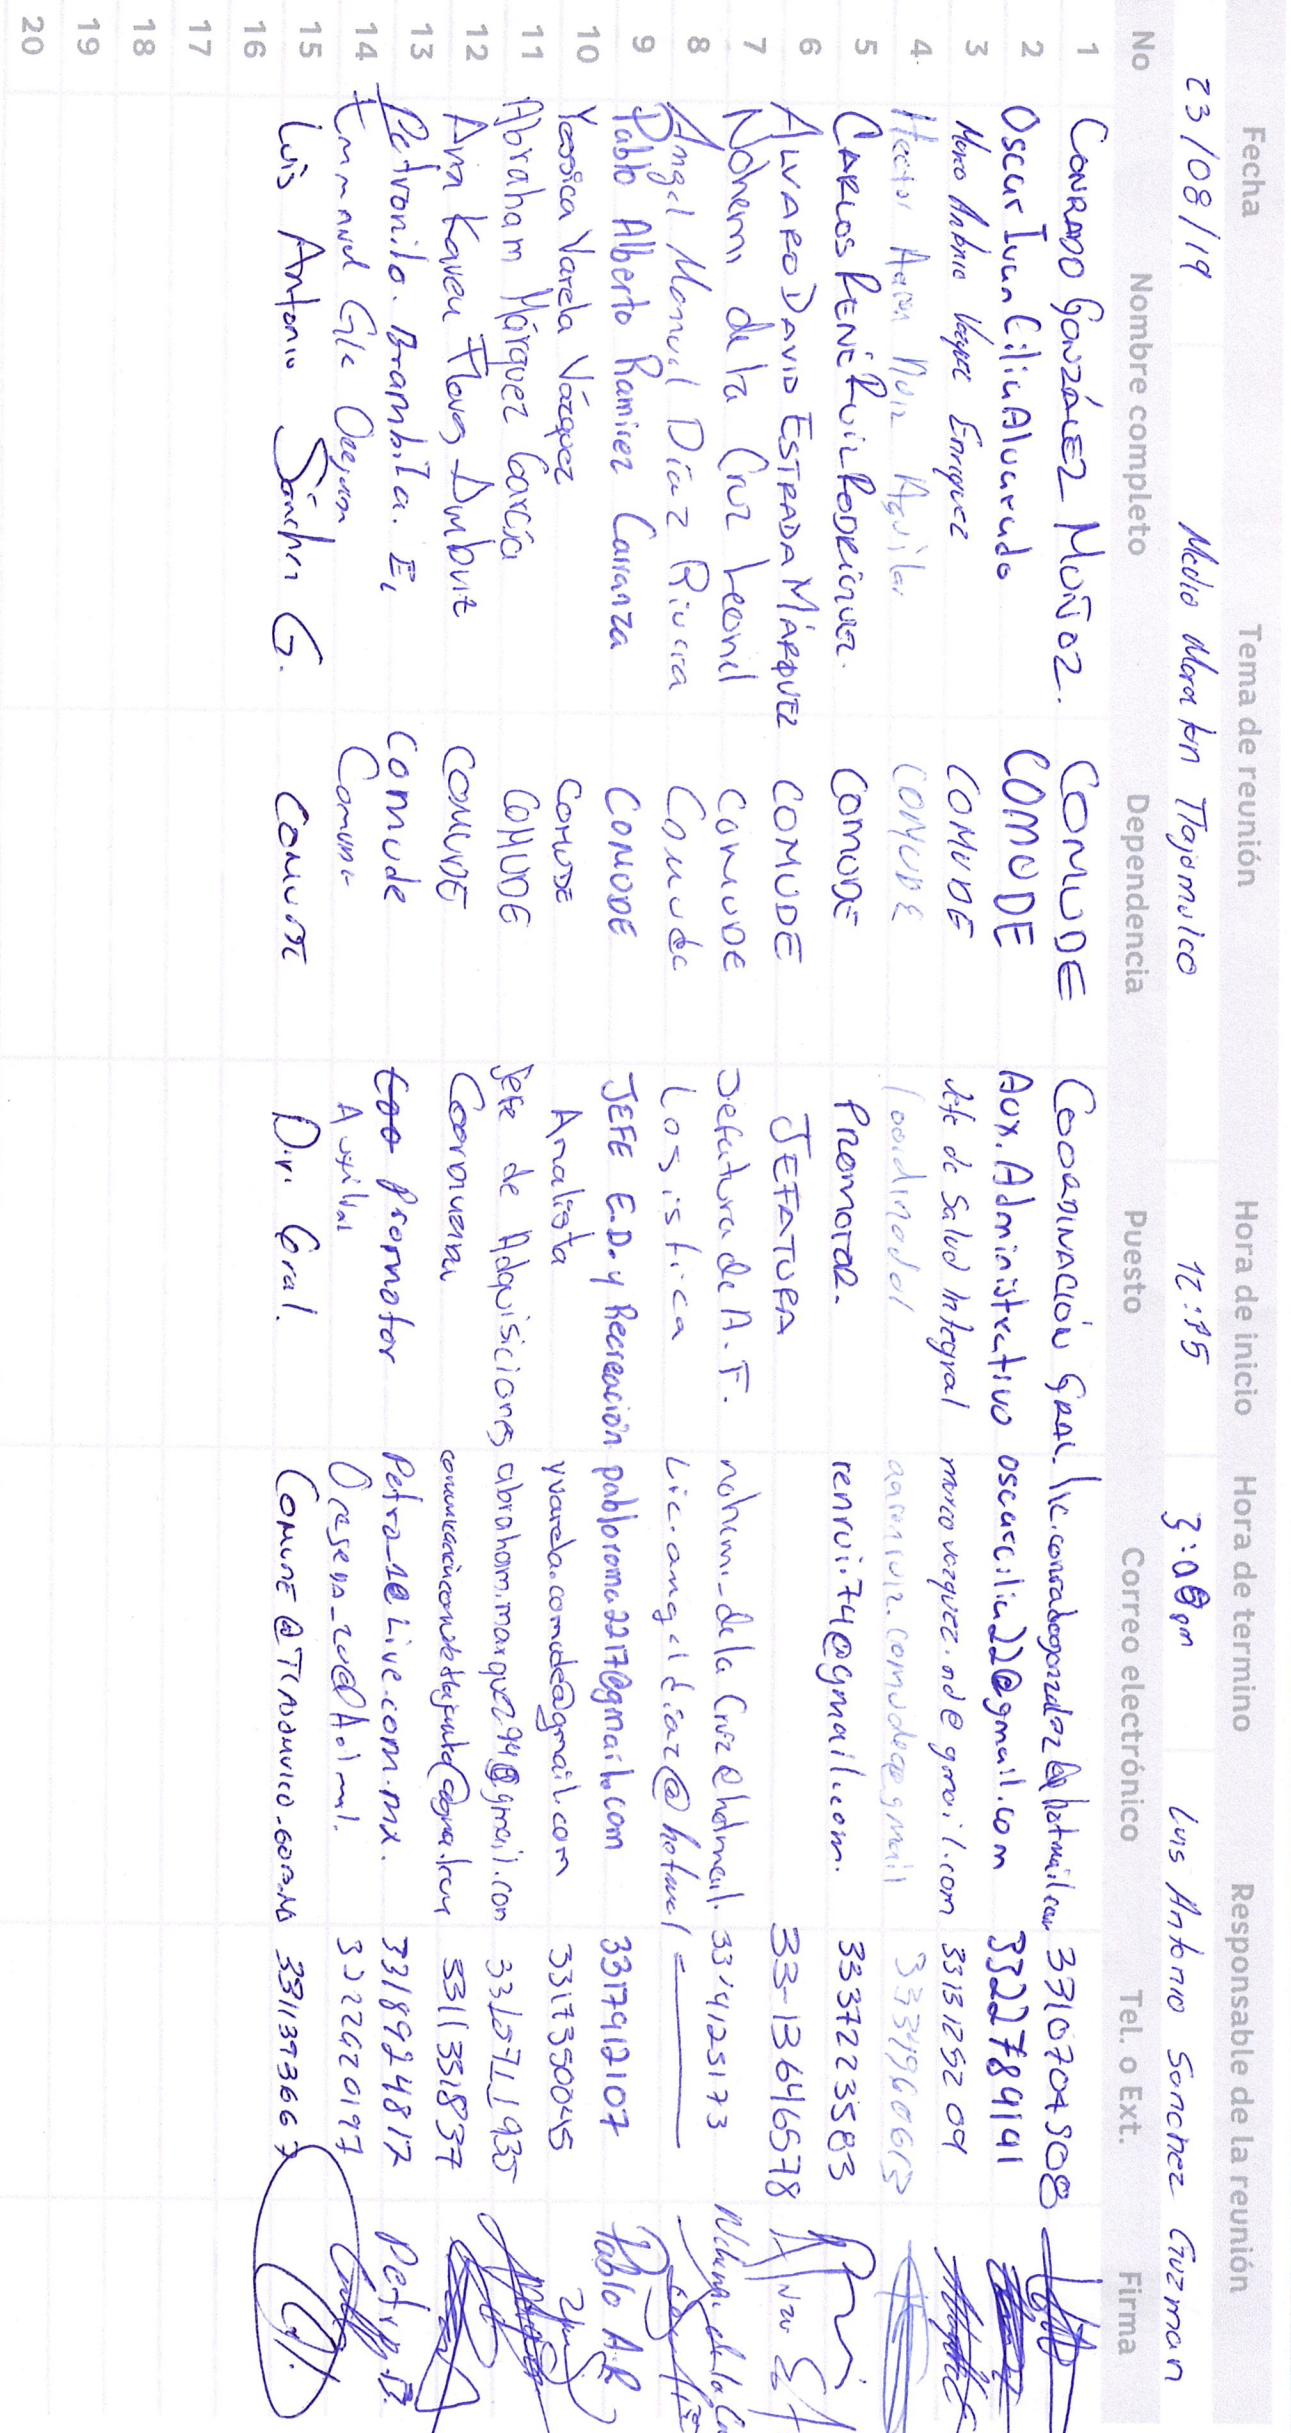 Fecha Tema de reunión Hora de inicio Hora de termino Responsable de la reunión
23/08/19 Medio Maraton Tlajomulco 12:15 3:00 pm Luis Antonio Sanchez Guzman
No Nombre completo Dependencia Puesto Correo electrónico Tel. o Ext. Firma
1 CONRADO GONZÁLEZ MUÑOZ. COMUDE COORDINACIÓN GRAL. lic.conradogonzalez@hotmail.com 3310704908
2 Oscar Ivan Cilia Alvarado COMUDE Aux. Administrativo oscarcilia22@gmail.com 3322789141
3 Marco Antonio Vazquez Enriquez COMUDE Jefe de Salud Integral marcovazquez.nd@gmail.com 3313125209
4 Hector Aaron Ruiz Aguilar COMUDE Coordinador aaronruiz.comude@gmail 3334960613
5 CARLOS RENÉ RUIZ RODRÍGUEZ. COMUDE PROMOTOR. renruii74@gmail.com. 3337223583
6 ALVARO DAVID ESTRADA MÁRQUEZ COMUDE JEFATURA 33-13646578
7 Nohemi de la Cruz Leonel COMUDE Jefatura de A.F. nohemi_delaCruz@hotmail. 3314125173
8 Angel Manuel Díaz Rivera Comude Logistica Lic.angeldiaz@hotmail
9 Pablo Alberto Ramirez Carranza COMUDE JEFE E.D. y Recreación pabloroma2217@gmail.com 3317912107 Pablo A.R
10 Yessica Varela Vázquez COMUDE Analista yvarela.comude@gmail.com 3317350045
11 Abraham Márquez García COMUDE Jefe de Adquisiciones abraham.marquez94@gmail.com 3315711935
12 Ana Karen Flores COMUDE 3311351837
13 Petronilo. Brambila. E, Comude Promotor Petro_10@Live.com.mx. 3318924817 Petro.B.
14 Emmanuel Glz Auxiliar 3322620197
15 Luis Antonio Sánchez G. COMUDE Dir. Gral. COMUDE@TLAJOMULCO.GOB.MX 3311393667
16
17
18
19
20